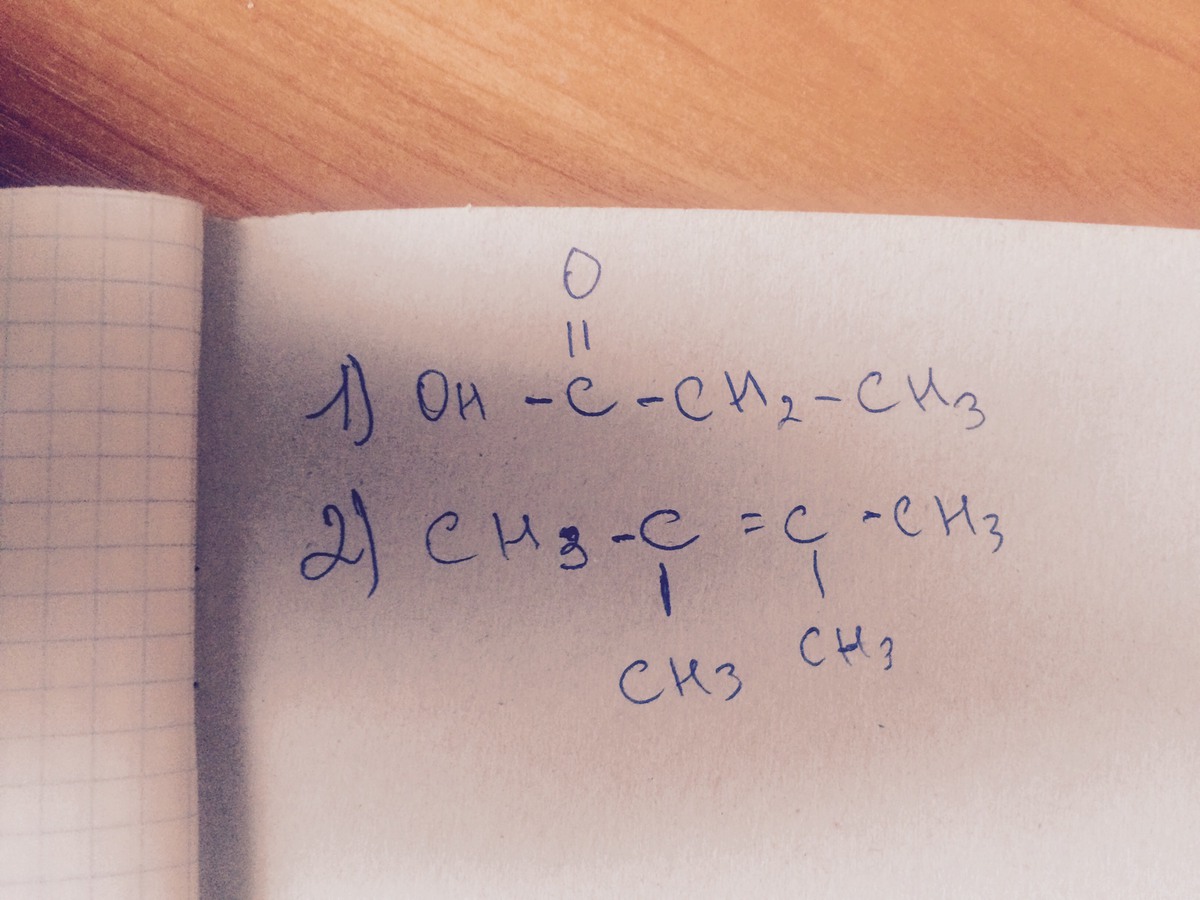 O
||
1) OH - C - CH2 - CH3
2) CH3 - C = C - CH3
| |
CH3 CH3